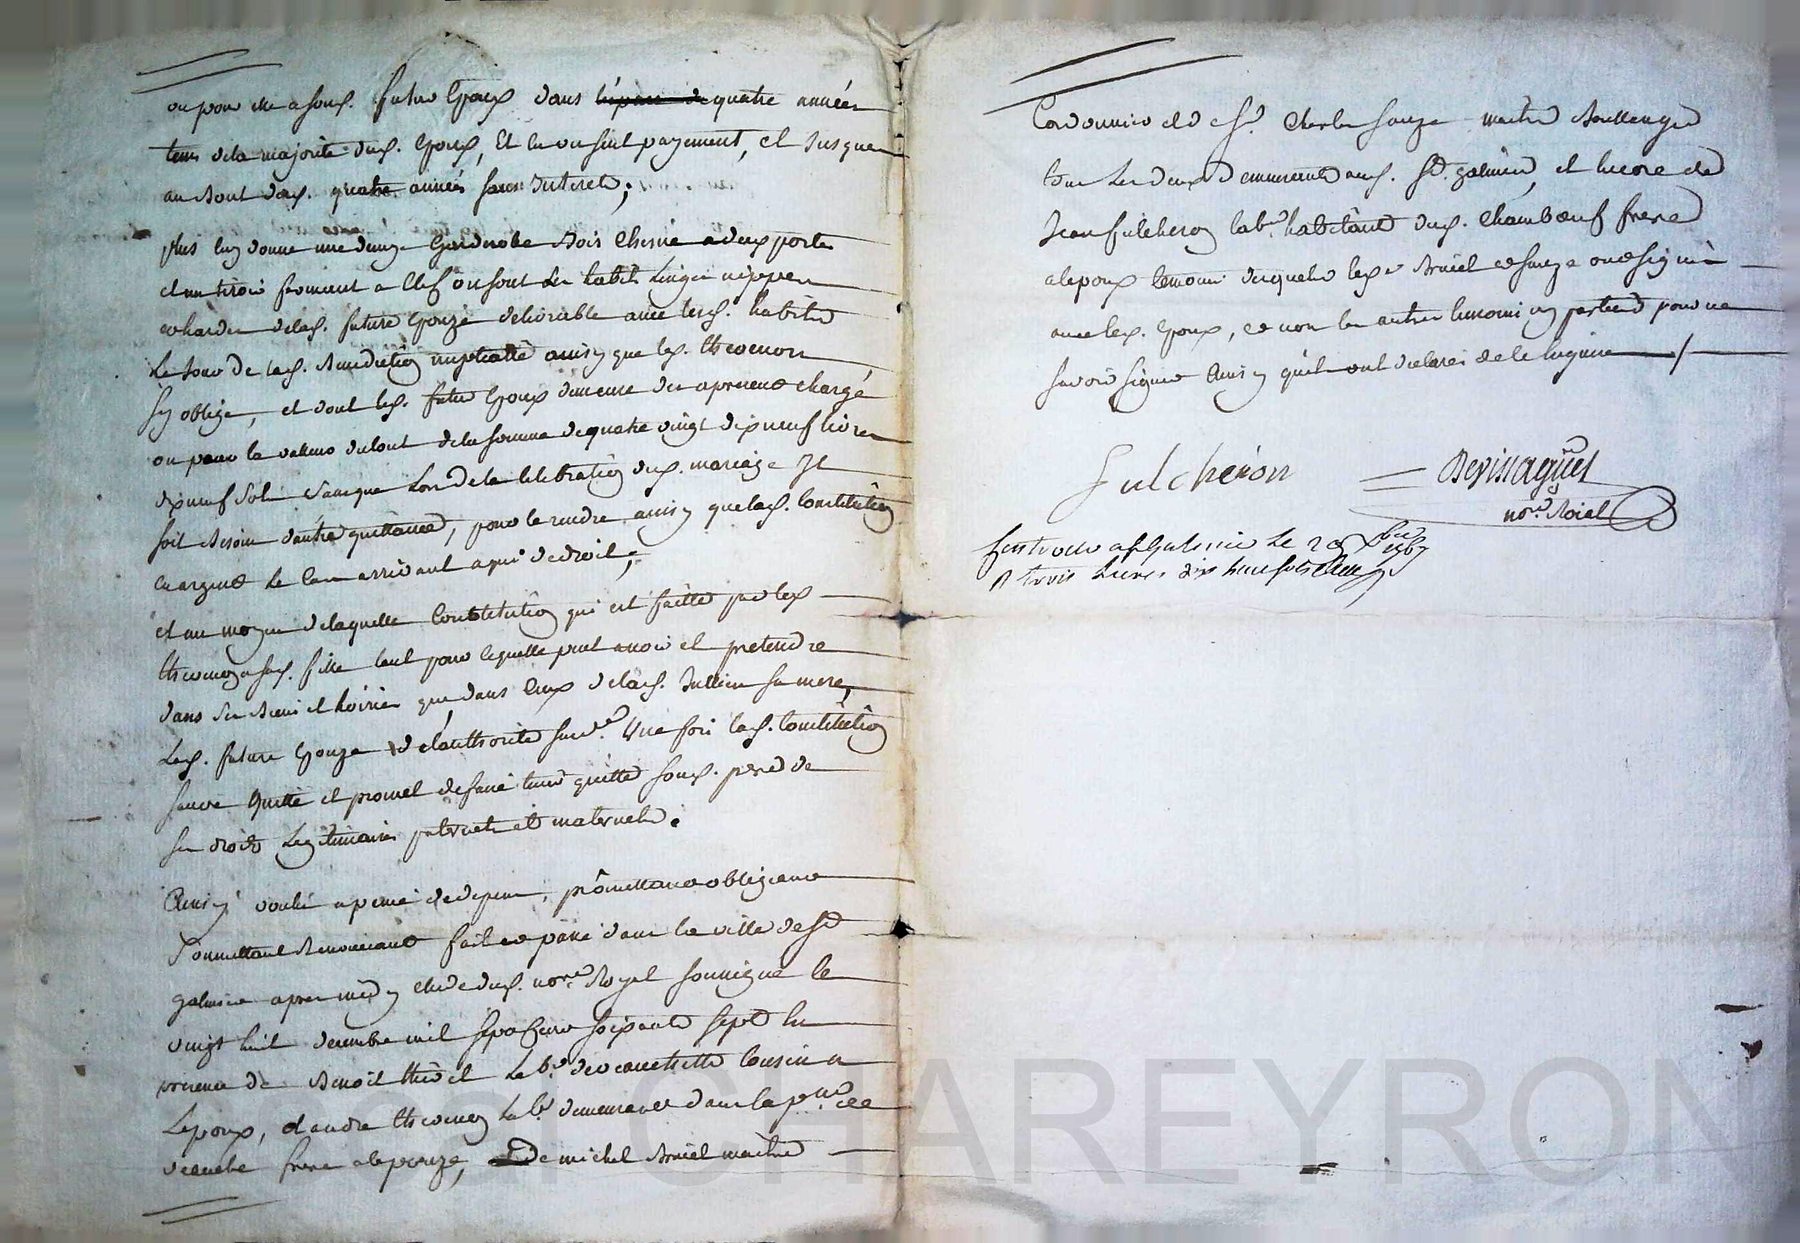 ou pour elle a sond. futur Epoux dans quatre années
tems de la majorité dud. Epoux, Et en un seul payement, et jusques
au bout desd. quatre années sans interets;
plus luy donne une garderobe bois chesne a deux portes
et un tiroir fermant a clef ou sont les habits linges nippes
et hardes de lad. future Epouze delivrable avec lesd. habits
le jour de lad. benediction nuptialle ainsy que led. thevenon
s'y oblige, et dont led. futur Epoux demeure des apresent chargé
ou pour la valleur du tout de la somme de quatre vingt dix neuf livres
dix neuf sols sans que lors de la celebration dud. mariage Il
soit besoin d'autre quittance, pour le rendre ainsy que lad. constitution
en argent le cas arrivant a qui de droit;
et au moyen de laquelle constitution qui est faitte par led.
thevenon a sad. fille tant pour ce quelle peut avoir et pretendre
dans ses biens et hoirie que dans ceux de lad. Jullien sa mere,
lad. future Epouze de l'authorité Une fois lad. constitution
quitte et promet de faire tenir quitte sond. pere de
ses droits legitimaires paternels et maternels.
Ainsy voulu a peine de depens, promettant obligeant
Soumettant Renonceant fait et passé dans la ville de St
galmier apres midy Etude dud. nore. Royal soussigné le
vingt huit decembre mil sept cent soixante sept En
presence de Benoit labr. cousin a
l'epoux, d'andre thevenon labr. demeurant dans la psse. de
veauche frere a l'epouze, de michel Bruel maitre
Cordonnier et de Sr. Charles Sauze maitre Boullenger
tous les deux demeurants aud. St. galmier, et encore de
Jean fulcheron labr. habitant dud. Chambœuf frere
a l'epoux temoins desquels lesd. Bruel et Sauze ont signé
avec led. Epoux, et non les autres temoins ny parties pour ne
savoir signer Ainsy qu'ils ont declaré de ce enquis
Fulcheron
nore. Roial
Controllé a St Galmier Le 29 Xbre 1767
R trois livres dix huit sols
CHAREYRON